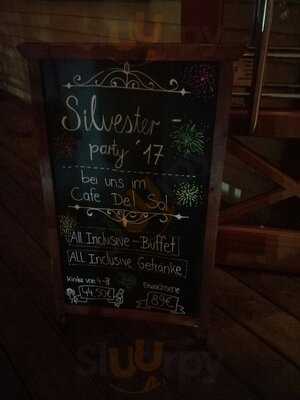 Silvester -
party '17
bei uns im
Cafe Del Sol
All Inclusive-Buffet
ALL Inclusive Getränke
Kinder von 4-11 Erwachsene
44.50€ 89€
Sluurpy